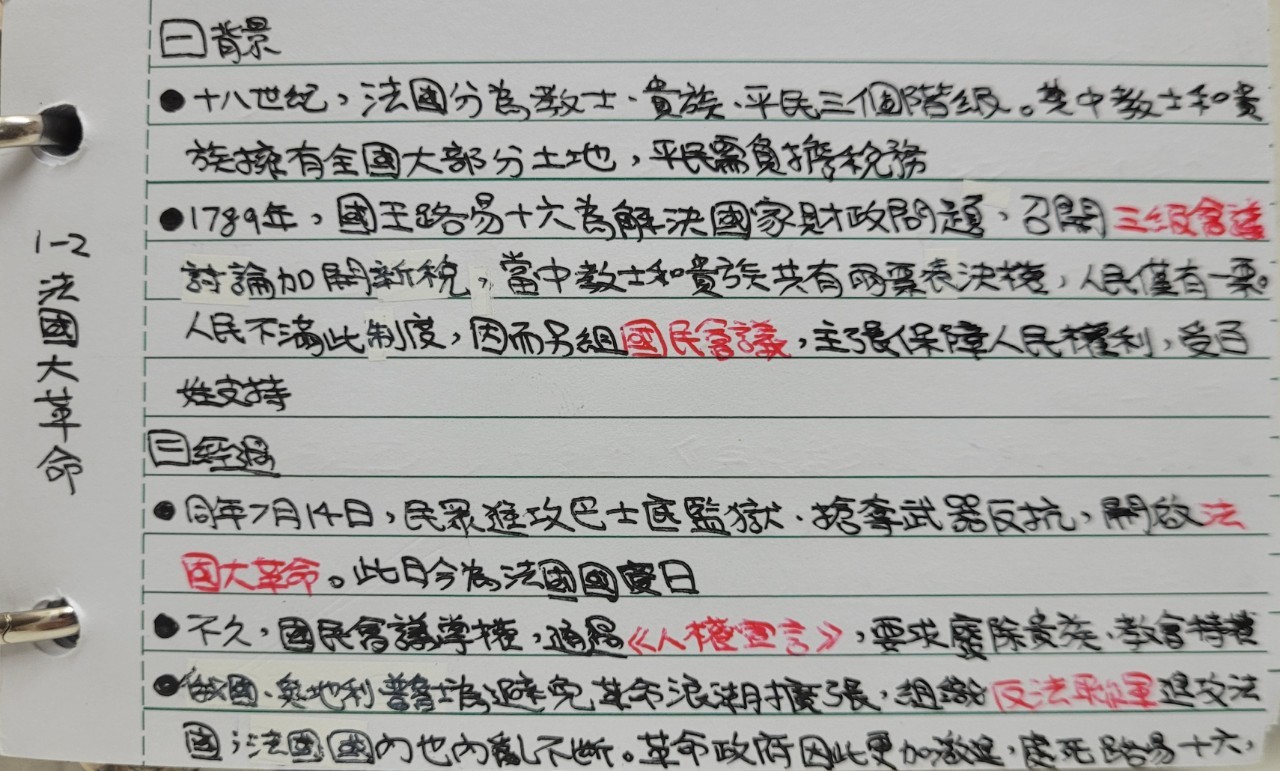 1-2 法國大革命
一 背景
●十八世紀，法國分為教士、貴族、平民三個階級。其中教士和貴
族擁有全國大部分土地，平民需負擔稅務
●1789年，國王路易十六為解決國家財政問題，召開三級會議
討論加開新稅，當中教士和貴族共有兩票表決權，人民僅有一票。
人民不滿此制度，因而另組國民會議，主張保障人民權利，受百
姓支持
二 經過
●同年7月14日，民眾進攻巴士底監獄、搶奪武器反抗，開啟法
國大革命。此日今為法國國慶日
●不久，國民會議掌權，通過《人權宣言》，要求廢除貴族、教會特權
●俄國、奧地利、普魯士為避免革命浪潮擴張，組織反法聯軍進攻法
國；法國國內也內亂不斷。革命政府因此更加激進，處死路易十六，